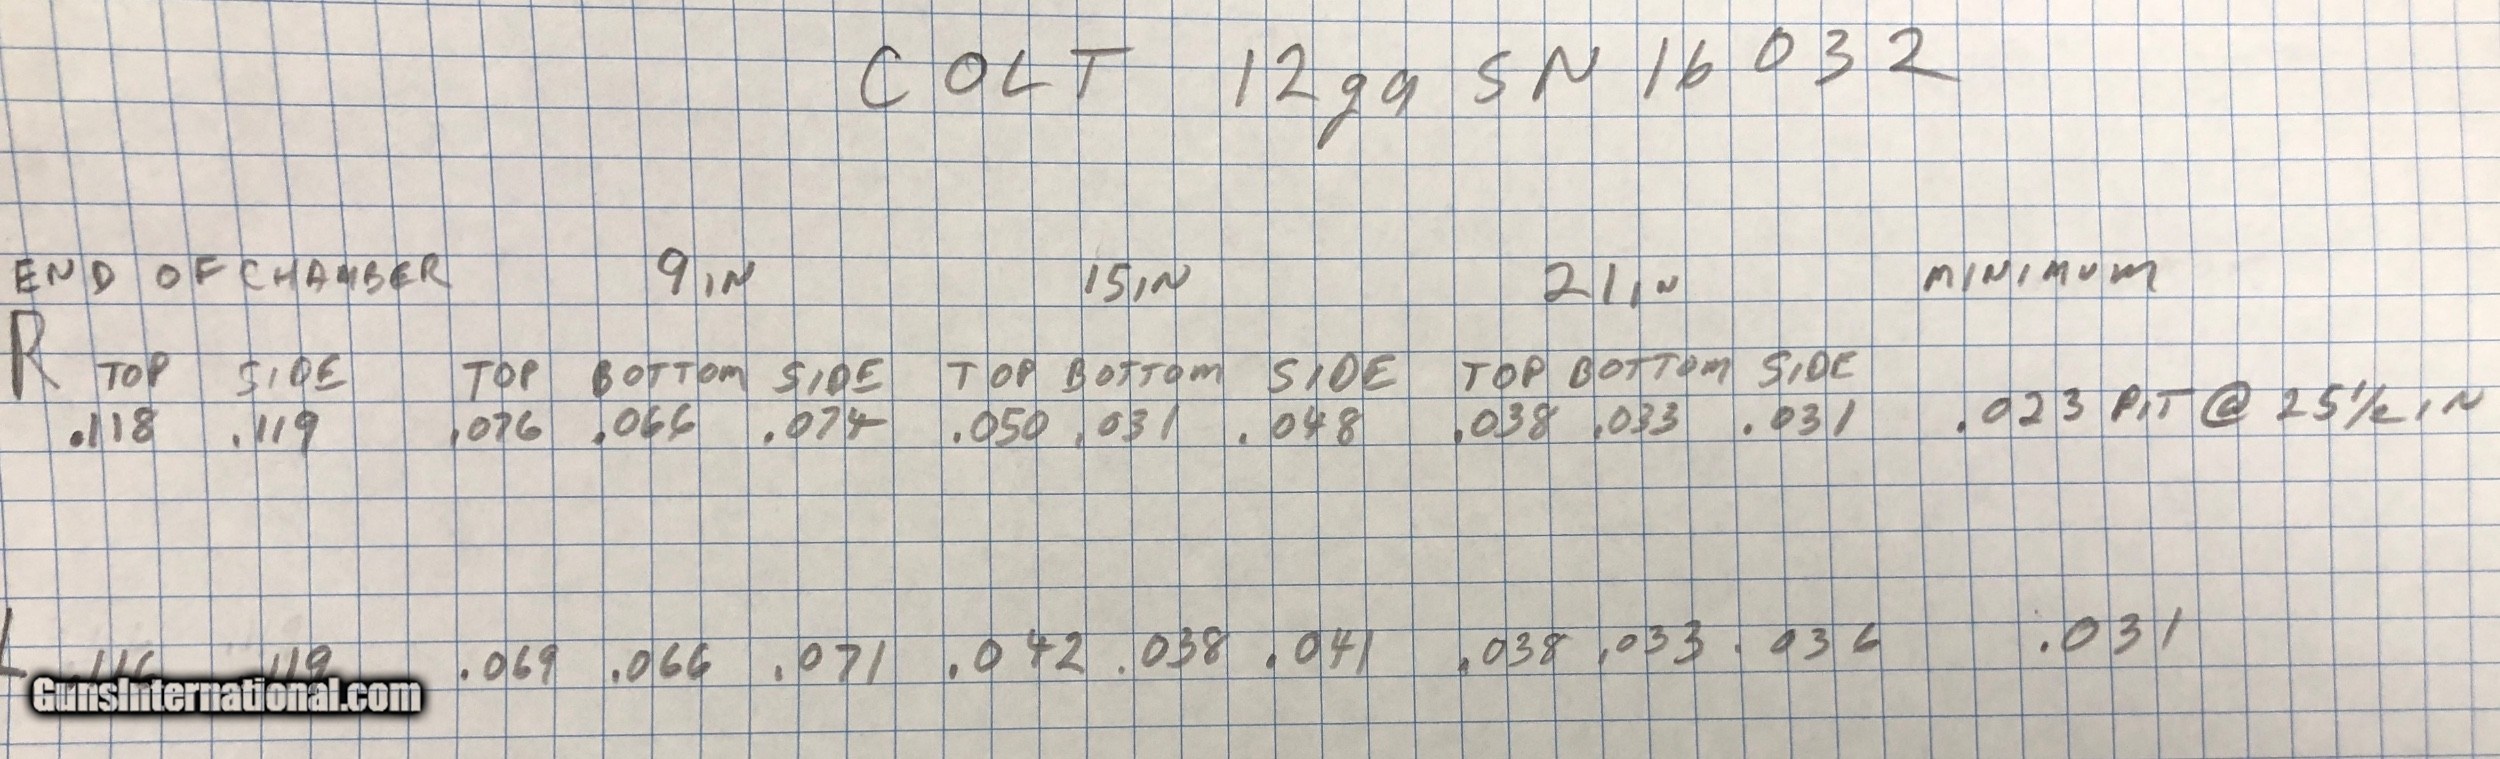 COLT 12ga SN 16032
END OF CHAMBER 9IN 15IN 21IN MINIMUM
R TOP SIDE TOP BOTTOM SIDE TOP BOTTOM SIDE TOP BOTTOM SIDE
.118 .119 .076 .066 .074 .050 .031 .048 .038 .033 .031 .023 PIT @ 25 1/2 IN
L .116 .119 .069 .066 .071 .042 .038 .041 .038 .033 .036 .031
GunsInternational.com